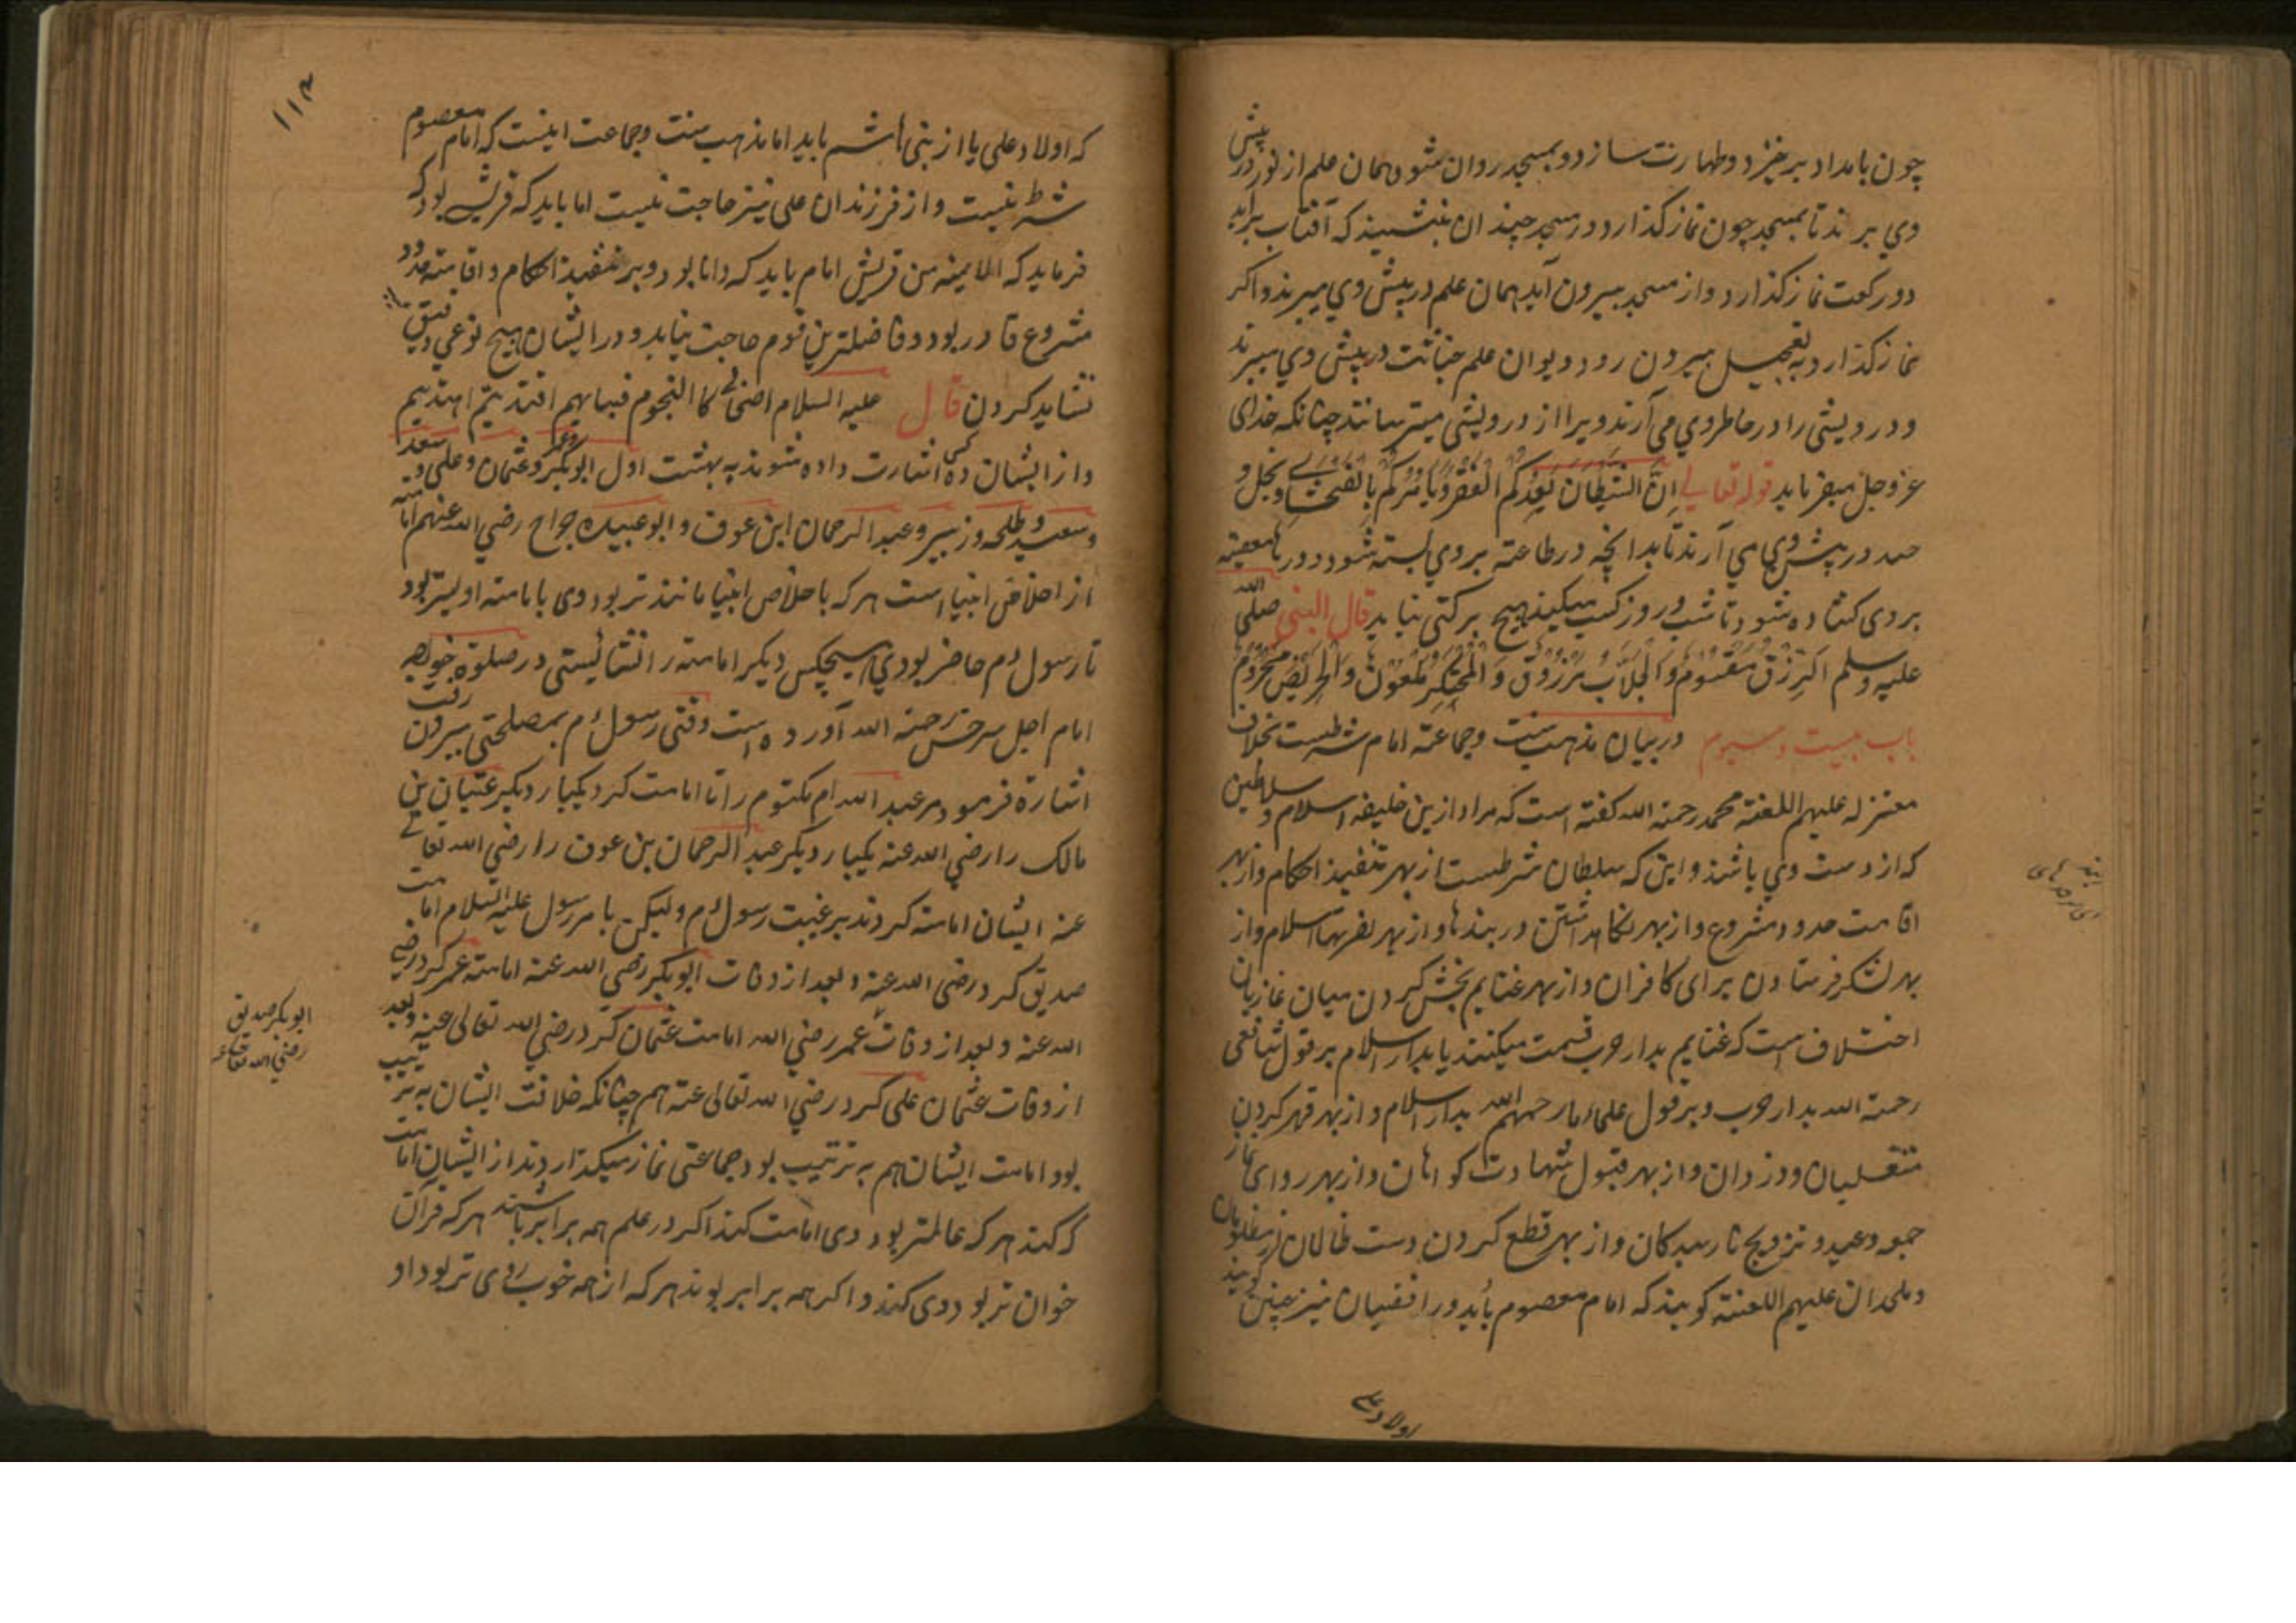 چون بامداد برخیزد و طهارت سازد و بمسجد روان شود همان علم از نور در پیش
وی برند تا بمسجد چون نماز گذارد و در مسجد چندان بنشیند که آفتاب برآید
دو رکعت نماز گذارد و از مسجد بیرون آید همان علم در پیش وی میبرند و اگر
نماز گذارد به تعجیل بیرون رود دیوان علم خباثت در پیش وی میبرند
و درویشی را در خاطر وی می آرند و ویرا از درویشی میترسانند چنانکه خدای
عز و جل میفرماید قوله تعالی اِنَّ الشَّیطان یَعِدُکُم الفَقرَ وَیَأمُرُکُم بِالفَحشاءِ و بخل و
حسد در پیش وی می آرند تا بدانچه در طاعته بروی بسته شود و درهاء معصیته
بروی کشاده شود تا شب و روز کسب میکند هیچ برکتی نیابد قال النبی صلی الله
علیه و سلم اَلرِّزقُ مَقسُومٌ وَالجَلّابُ مَرزُوقٌ وَالمُحتَکِرُ مَلعُونٌ وَالحَرِیصُ مَحرُومٌ
باب بیست و سیوم در بیان مذهب سنت و جماعته امام شرطست بخلاف
معتزله علیهم اللعنة محمد رحمة الله گفته است که مراد ازین خلیفه اسلام و سلاطین
که از دست وی باشند و این که سلطان شرطست از بهر تنفیذ احکام و از بهر
اقامت حدود مشروع و از بهر نگاهداشتن دربندها و از بهر ثغرها اسلام و از
بهر لشکر فرستادن برای کافران و از بهر غنایم بخش کردن میان غازیان
اختلاف است که غنایم بدار حرب قسمت میکنند یا بدار اسلام بر قول شافعی
رحمة الله بدار حرب و بر قول علماء ما رحمهم الله بدار اسلام و از بهر قهر کردن
متغلبان و دزدان و از بهر قبول شهادت گواهان و از بهر روای نماز
جمعه و عید و تزویج نارسیدگان و از بهر قطع کردن دست ظالمان از مظلومان
و ملحدان علیهم اللعنة گویند که امام معصوم باید و رافضیان نیز چنین گویند
اولاد علی
۱۱۲
که اولاد علی یا از بنی هاشم باید اما مذهب سنت و جماعت اینست که امام معصوم
شرط نیست و از فرزندان علی نیز حاجت نیست اما باید که قریشی بود که
فرماید که الایمه من قریش امام باید که دانا بود و بر تنفیذ احکام و اقامته حدود
مشروع قادر بود و فاضلترین قوم حاجت نیاید و در ایشان هیچ نوعی
نشاید کردن قال علیه السلام اصحابی کا النجوم فبایهم اقتدیتم اهتدیتم
و از ایشان ده کس اشارت داده شوند به بهشت اول ابوبکر و عمر و عثمان و علی و سعد
و سعید و طلحه و زبیر و عبد الرحمان ابن عوف و ابو عبیده جراح رضی الله عنهم امامته
از اخلاق انبیا است هر که باخلاص انبیا مانند تر بود وی بامامته اولیتر بود
تا رسول م حاضر بودی هیچکس دیگر امامته را نشایستی در صلوة خواجه
امام اجل سرخس رحمة الله آورده است وقتی رسول م بمصلحتی بیرون رفت
اشارة فرمود مر عبد الله ام مکتوم را تا امامت کرد یکبار دیگر عتبان بن
مالک را رضی الله عنه یکبار دیگر عبد الرحمان بن عوف را رضی الله تعالی
عنه ایشان امامته کردند بر غیبت رسول م ولیکن بامر رسول علیه السلام امامت
صدیق کرد رضی الله عنه و بعد از وفات ابوبکر رضی الله عنه امامته عمر کرد رضی
الله عنه و بعد از وفات عمر رضی الله امامت عثمان کرد رضی الله تعالی عنه و بعد
از وفات عثمان علی کرد رضی الله تعالی عنه هم چنانکه خلافت ایشان به ترتیب
بود امامت ایشان هم به ترتیب بود جماعتی نماز میگذاردند از ایشان امامت
که کند هر که عالمتر بود وی امامت کند اگر در علم همه برابر باشند هر که قرآن
خوان تر بود وی کند و اگر همه برابر بوند هر که از همه خوب روی تر بود او
ابوبکر صدیق
رضی الله تعالی عنه